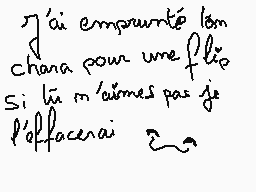 J'ai emprunté ton
chara pour une flip
si tu m'aimes pas je
l'effacerai